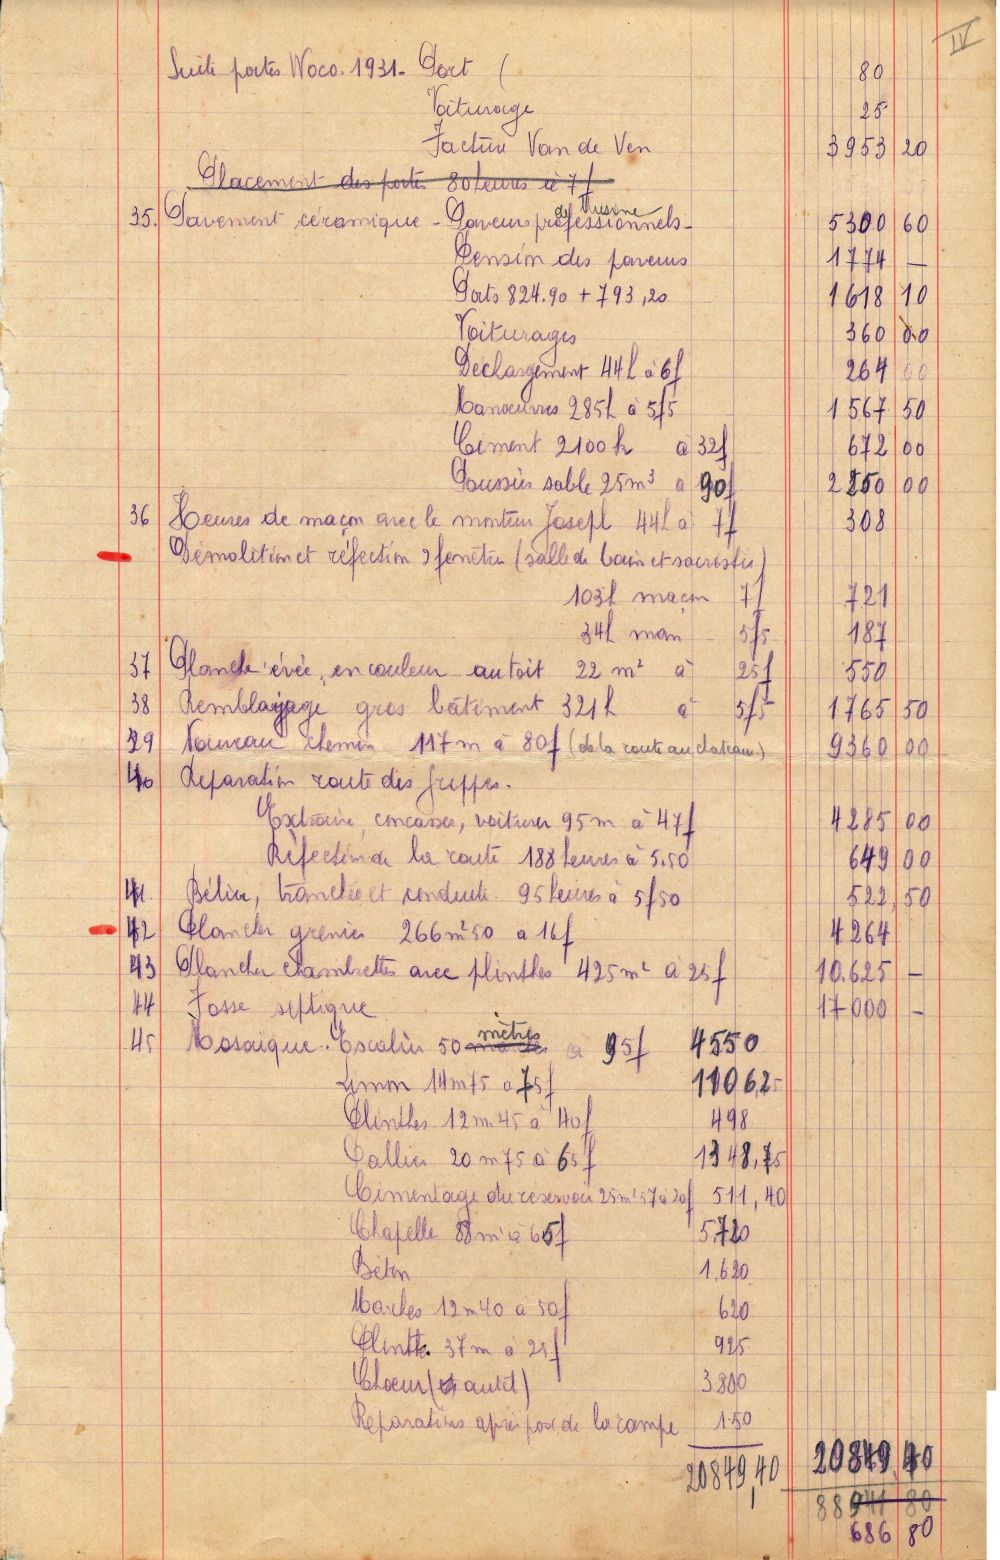 IV
Suite portes Noco. 1931 - Port ( 80
Voiturage 25
Facture Van de Ven 3953 20
Placement des portes 80 heures à 7f
de l'usine
35. Pavement céramique - Paveurs professionnels - 5300 60
Pension des paveurs 1774 —
Ports 824.90 + 793,20 1618 10
Voiturages 360 00
Déchargement 44h à 6f 264 00
Manoeuvres 285h à 5f5 1567 50
Ciment 2100 k à 32f 672 00
Poussier sable 25m³ à 90f 2250 00
36 Heures de maçon avec le monteur Joseph 44h à 7f 308
Démolition et réfection 2 fenêtres (salle de bain et sacristie)
103h maçon 7f 721
34h man 5f5 187
37 Planche rivée, en couleur au toit 22 m² à 25f 550
38 Remblayage gros bâtiment 321h à 5f5 1765 50
39 Nouveau chemin 117m à 80f (de la route au chateau) 9360 00
40 Reparation route des
Extraire, concasser, voiturer 95m à 47f 4285 00
Réfection de la route 188 heures à 5.50 649 00
41. Bélier, tranchée et conduite 95 heures à 5f50 522,50
42 Plancher grenier 266m²50 à 16f 4264
43 Plancher chambrettes avec plinthes 425m² à 25f 10.625 —
44 Fosse septique 17000 —
mètres
45 Mosaïque. Escalier 50 à 95f 4550
Limon 14m75 à 75f 1106,25
Plinthes 12m45 à 40f 498
Pallier 20m75 à 65f 1348,75
Cimentage du réservoir 25m²57 à 20f 511,40
Chapelle 88m² à 65f 5,720
Béton 1.620
Marches 12m40 à 50f 620
Plinth. 37m à 25f 925
Choeur (et autel) 3800
Réparations après pose de la rampe 150
20849,40 20849 40
88941 80
686 80